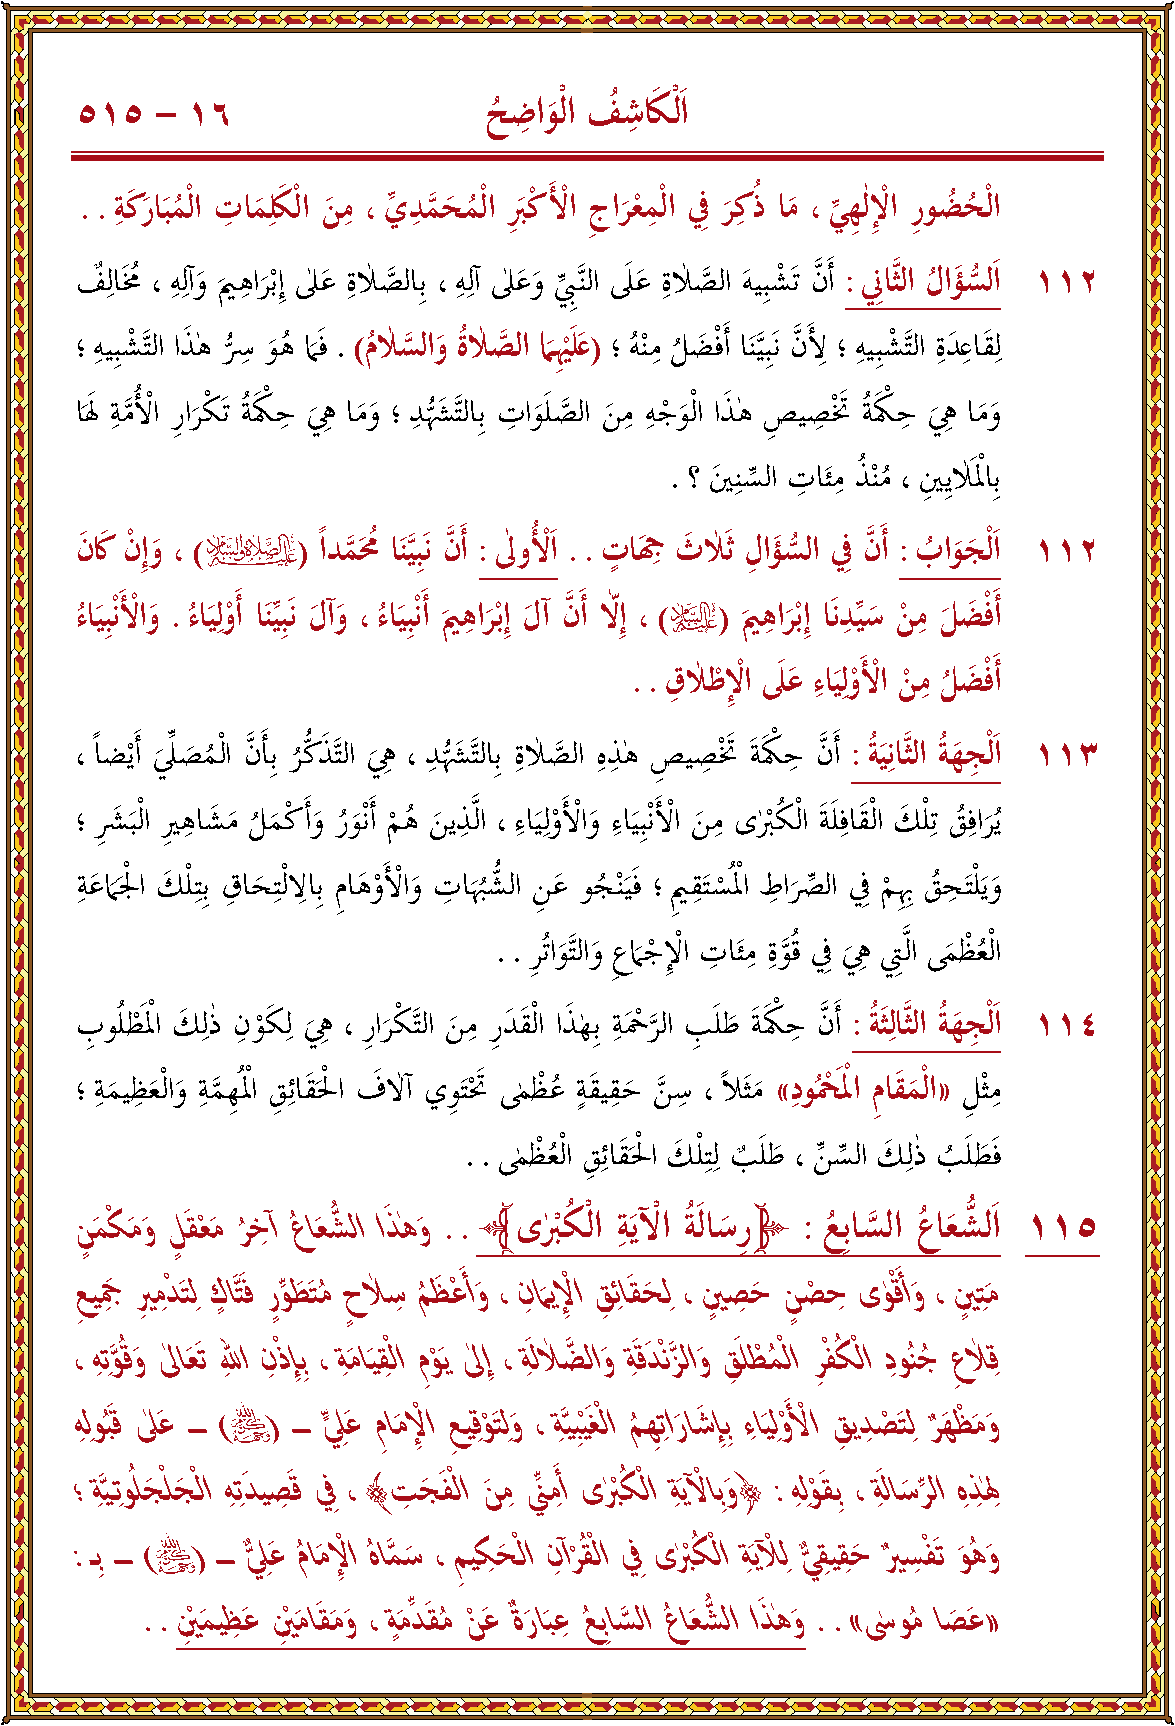 ١٦ – ٥١٥ اَلْكَاشِفُ الْوَاضِحُ
الْحُضُورِ الْإِلٰهِيِّ ، مَا ذُكِرَ فِي الْمِعْرَاجِ الْأَكْبَرِ الْمُحَمَّدِيِّ ، مِنَ الْكَلِمَاتِ الْمُبَارَكَةِ . .
١١٢ اَلسُّؤَالُ الثَّانِي : أَنَّ تَشْبِيهَ الصَّلَاةِ عَلَى النَّبِيِّ وَعَلىٰ آلِهِ ، بِالصَّلَاةِ عَلىٰ إِبْرَاهِيمَ وَآلِهِ ، مُخَالِفٌ
لِقَاعِدَةِ التَّشْبِيهِ ؛ لِأَنَّ نَبِيَّنَا أَفْضَلُ مِنْهُ ؛ (عَلَيْهِمَا الصَّلَاةُ وَالسَّلَامُ) . فَمَا هُوَ سِرُّ هٰذَا التَّشْبِيهِ ؛
وَمَا هِيَ حِكْمَةُ تَخْصِيصِ هٰذَا الْوَجْهِ مِنَ الصَّلَوَاتِ بِالتَّشَهُّدِ ؛ وَمَا هِيَ حِكْمَةُ تَكْرَارِ الْأُمَّةِ لَهَا
بِالْمَلَايِينِ ، مُنْذُ مِئَاتِ السِّنِينَ ؟ .
١١٢ اَلْجَوَابُ : أَنَّ فِي السُّؤَالِ ثَلَاثَ جِهَاتٍ . . اَلْأُولىٰ : أَنَّ نَبِيَّنَا مُحَمَّداً (عَلَيْهِ الصَّلَاةُ وَالسَّلَامُ) ، وَإِنْ كَانَ
أَفْضَلَ مِنْ سَيِّدِنَا إِبْرَاهِيمَ (عَلَيْهِ السَّلَامُ) ، إِلَّا أَنَّ آلَ إِبْرَاهِيمَ أَنْبِيَاءُ ، وَآلَ نَبِيِّنَا أَوْلِيَاءُ . وَالْأَنْبِيَاءُ
أَفْضَلُ مِنْ الْأَوْلِيَاءِ عَلَى الْإِطْلَاقِ . .
١١٣ اَلْجِهَةُ الثَّانِيَةُ : أَنَّ حِكْمَةَ تَخْصِيصِ هٰذِهِ الصَّلَاةِ بِالتَّشَهُّدِ ، هِيَ التَّذَكُّرُ بِأَنَّ الْمُصَلِّيَ أَيْضاً ،
يُرَافِقُ تِلْكَ الْقَافِلَةَ الْكُبْرٰى مِنَ الْأَنْبِيَاءِ وَالْأَوْلِيَاءِ ، الَّذِينَ هُمْ أَنْوَرُ وَأَكْمَلُ مَشَاهِيرِ الْبَشَرِ ؛
وَيَلْتَحِقُ بِهِمْ فِي الصِّرَاطِ الْمُسْتَقِيمِ ؛ فَيَنْجُو عَنِ الشُّبُهَاتِ وَالْأَوْهَامِ بِالِالْتِحَاقِ بِتِلْكَ الْجَمَاعَةِ
الْعُظْمَى الَّتِي هِيَ فِي قُوَّةِ مِئَاتِ الْإِجْمَاعِ وَالتَّوَاتُرِ . .
١١٤ اَلْجِهَةُ الثَّالِثَةُ : أَنَّ حِكْمَةَ طَلَبِ الرَّحْمَةِ بِهٰذَا الْقَدَرِ مِنَ التَّكْرَارِ ، هِيَ لِكَوْنِ ذٰلِكَ الْمَطْلُوبِ
مِثْلِ «الْمَقَامِ الْمَحْمُودِ» مَثَلاً ، سِنَّ حَقِيقَةٍ عُظْمٰى تَحْتَوِي آلَافَ الْحَقَائِقِ الْمُهِمَّةِ وَالْعَظِيمَةِ ؛
فَطَلَبُ ذٰلِكَ السِّنِّ ، طَلَبٌ لِتِلْكَ الْحَقَائِقِ الْعُظْمٰى . .
١١٥ اَلشُّعَاعُ السَّابِعُ : ﴿رِسَالَةُ الْآيَةِ الْكُبْرٰى﴾ . . وَهٰذَا الشُّعَاعُ آخِرُ مَعْقَلٍ وَمَكْمَنٍ
مَتِينٍ ، وَأَقْوٰى حِصْنٍ حَصِينٍ ، لِحَقَائِقِ الْإِيمَانِ ، وَأَعْظَمُ سِلَاحٍ مُتَطَوِّرٍ فَتَّاكٍ لِتَدْمِيرِ جَمِيعِ
قِلَاعِ جُنُودِ الْكُفْرِ الْمُطْلَقِ وَالزَّنْدَقَةِ وَالضَّلَالَةِ ، إِلىٰ يَوْمِ الْقِيَامَةِ ، بِإِذْنِ اللهِ تَعَالىٰ وَقُوَّتِهِ ،
وَمَظْهَرٌ لِتَصْدِيقِ الْأَوْلِيَاءِ بِإِشَارَاتِهِمُ الْغَيْبِيَّةِ ، وَلِتَوْقِيعِ الْإِمَامِ عَلِيٍّ – (كَرَّمَ اللهُ وَجْهَهُ) – عَلىٰ قَبُولِهِ
لِهٰذِهِ الرِّسَالَةِ ، بِقَوْلِهِ : ﴿وَبِالْآيَةِ الْكُبْرٰى أَمِنِّي مِنَ الْفَجَتِ﴾ ، فِي قَصِيدَتِهِ الْجَلْجَلُوتِيَّةِ ؛
وَهُوَ تَفْسِيرٌ حَقِيقِيٌّ لِلْآيَةِ الْكُبْرٰى فِي الْقُرْآنِ الْحَكِيمِ ، سَمَّاهُ الْإِمَامُ عَلِيٌّ – (كَرَّمَ اللهُ وَجْهَهُ) – بِـ :
«عَصَا مُوسٰى» . . وَهٰذَا الشُّعَاعُ السَّابِعُ عِبَارَةٌ عَنْ مُقَدِّمَةٍ ، وَمَقَامَيْنِ عَظِيمَيْنِ . .